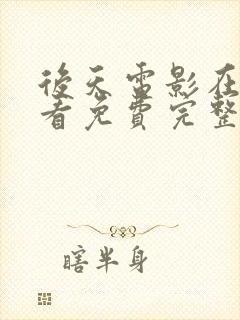 後天雷影在
看免費完整
瞎半身